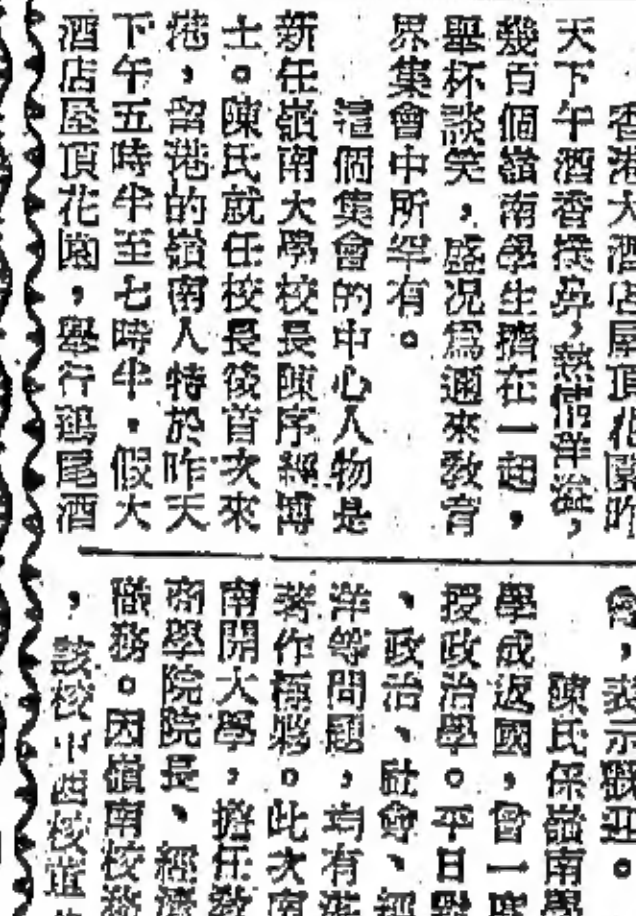 香港大酒店屋頂花園昨
天下午酒香撲鼻，熱情洋溢，
幾百個嶺南學生擠在一起，
舉杯談笑，盛况爲邇來敎育
界集會中所罕有。
這個集會的中心人物是
新任嶺南大學校長陳序經博
士。陳氏就任校長後首次來
港，留港的嶺南人特於昨天
下午五時半至七時半，假大
酒店屋頂花園，舉行鷄尾酒
會，表示歡迎。
陳氏係嶺南學
學成返國，曾一度
授政治學。平日對
、政治、社會、經
洋等問題，均有
著作極夥。此次
南開大學，擔任敎
商學院院長、經濟
職務。因嶺南校務
，該校